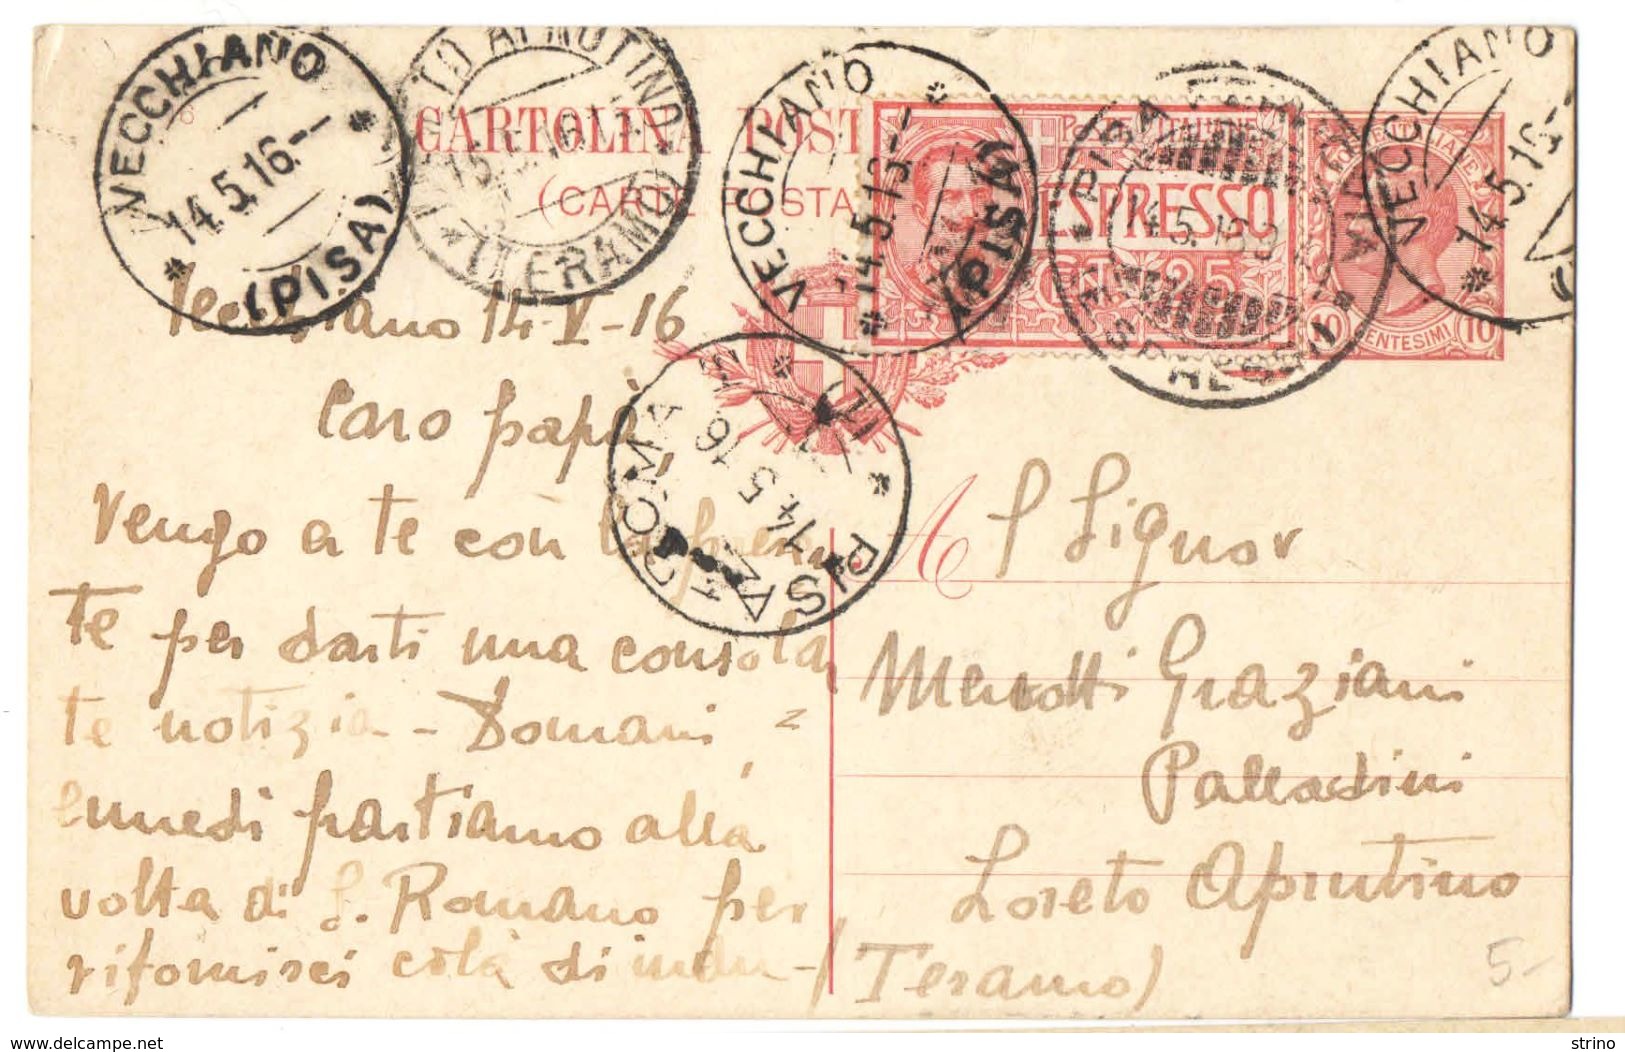 VECCHIANO
14.5.16.-
(PISA)
TO APRUTINO
(TERAMO)
VECCHIANO
14.5.16.-
(PISA)
PISA
14.5.16
ESPRESSI
VECCHIANO
14.5.16.-
CARTOLINA POST
(CARTE POSTA
ESPRESSO
CT. 25
10 CENTESIMI 10
PISA ROMA
14.5.16
Vecchiano 14-V-16
Caro papà,
Vengo a te con la presen
te per darti una consolan
te notizia - Domani =
lunedì partiamo alla
volta di S. Romano per
rifornirci colà di indu-/
Al Signor
Menotti Graziani
Palladini
Loreto Aprutino
(Teramo)
5-
delcampe.net
strino